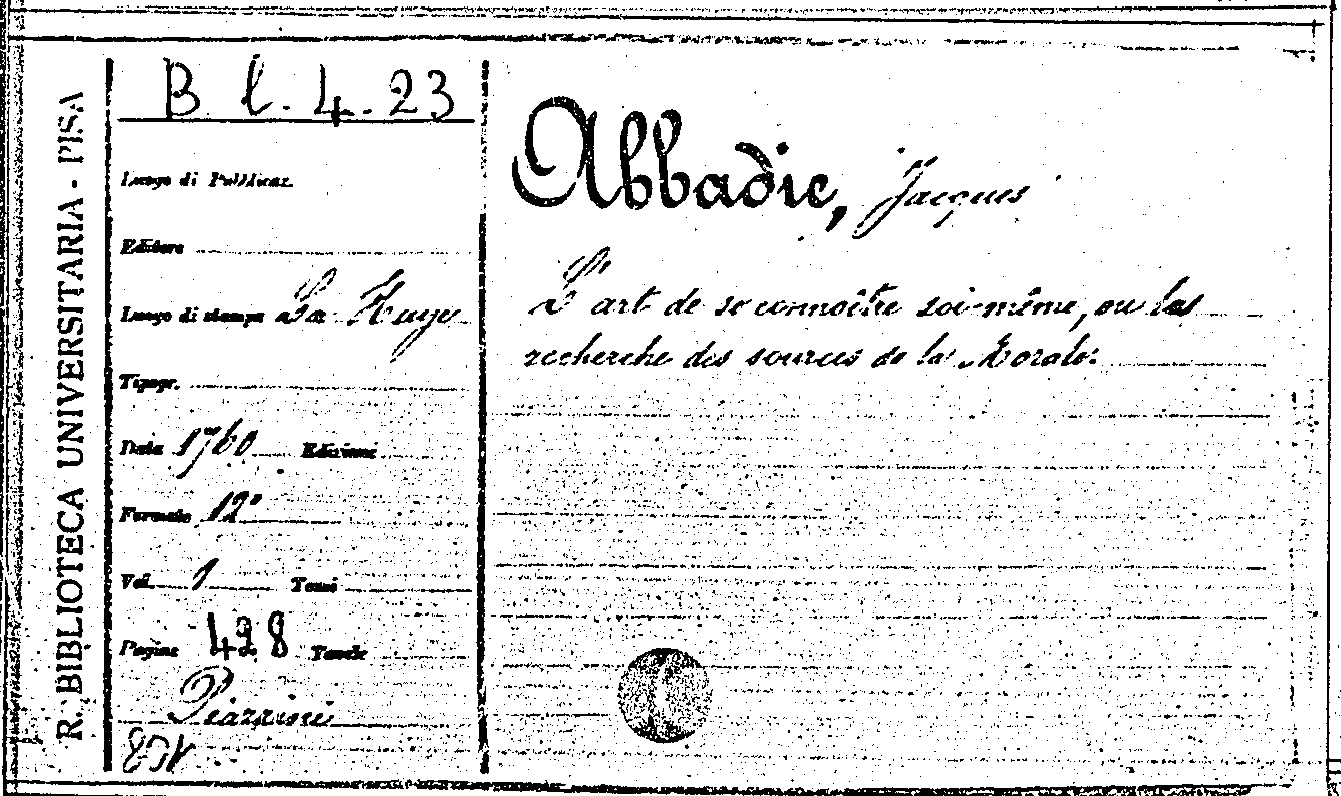 R. BIBLIOTECA UNIVERSITARIA - PISA
B l. 4. 23
Luogo di Pubblicaz.
Editore
Luogo di stampa La Haye
Tipogr.
Data 1760 Edizioni
Formato 12°
Vol. 1 Tomi
Pagine 428 Tavole
Piazzini
Abbadie, Jacques
L'art de se connoître soi-même, ou les
recherche des sources de la Morale.